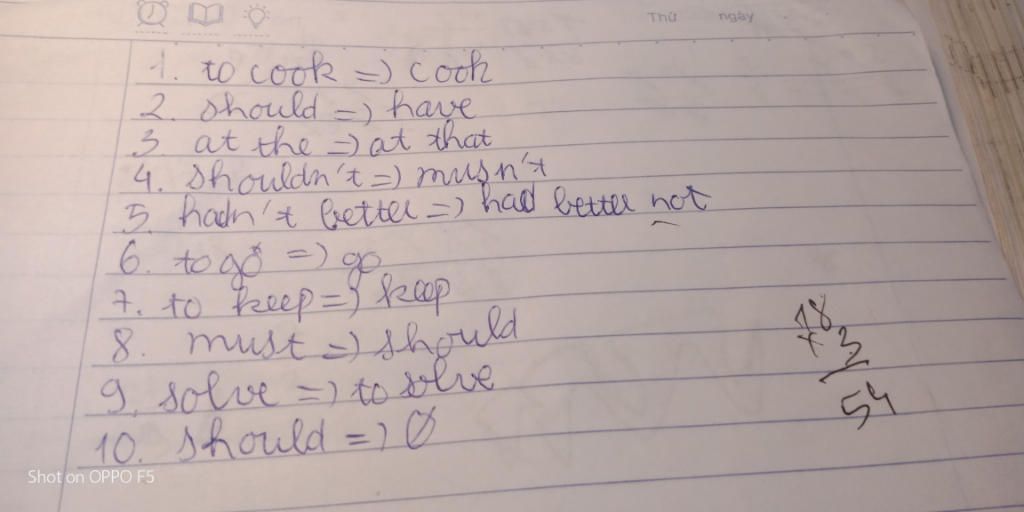 Thứ ngày
1. to cook => cook
2. should => have
3. at the => at that
4. shouldn't => musn't
5. hadn't better => had better not
6. to go => go
7. to keep => keep
8. must => should
9. solve => to solve
10. should => Ø
18
+ 3
54
Shot on OPPO F5